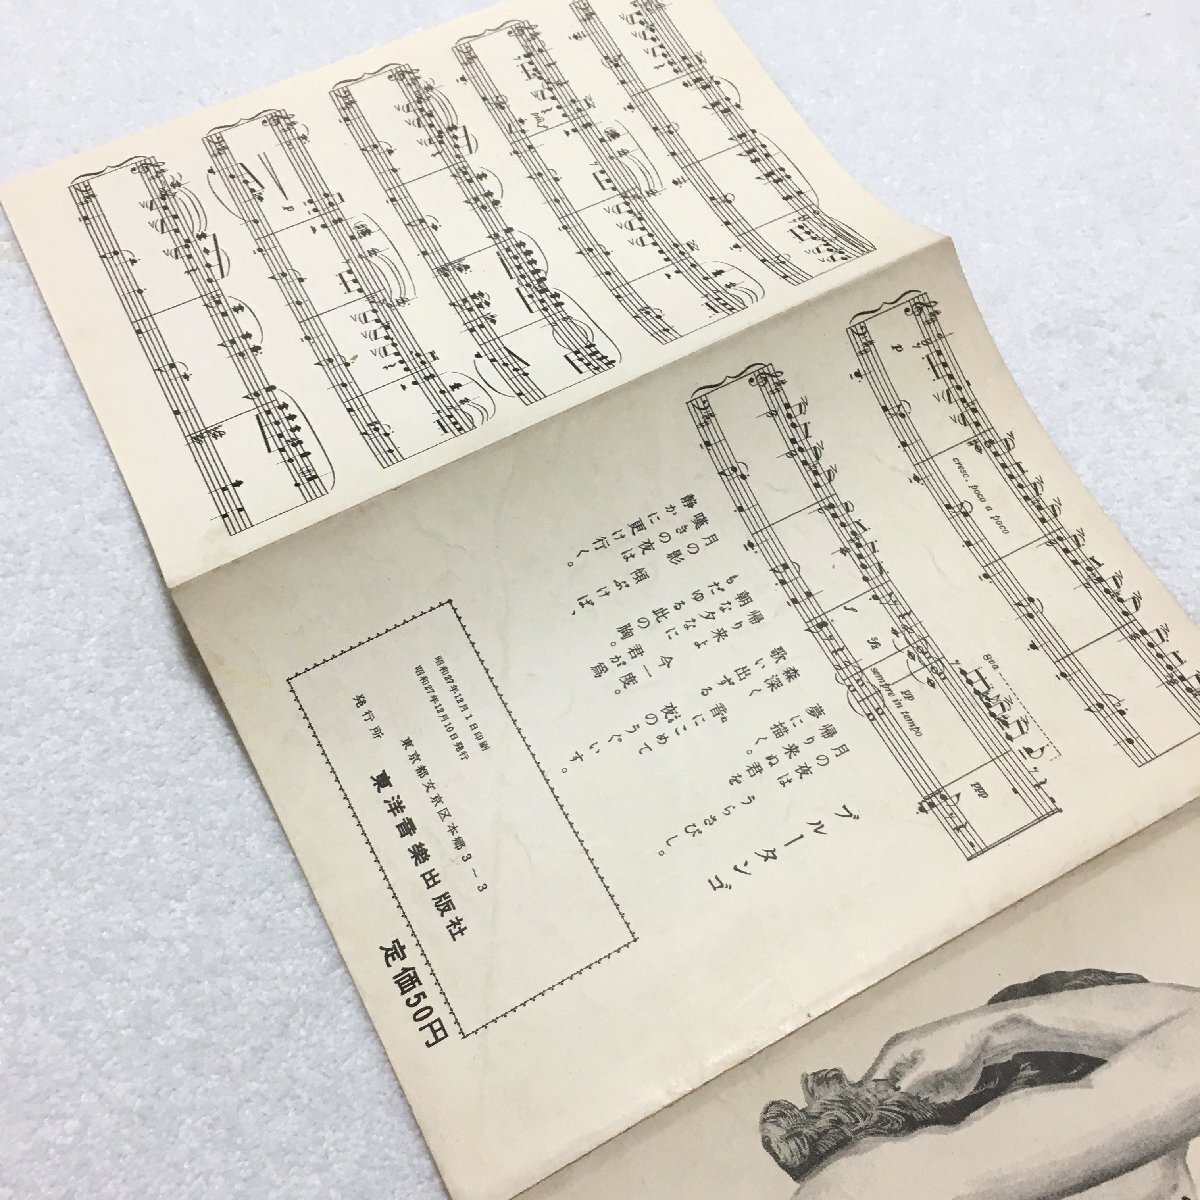 p
p
cresc. poco a poco
8va
pp
sempre in tempo
ppp
ブルータンゴ
月の夜は うらさびし。
帰り来ぬ君を
夢に描く。
森深く 音にこめて
歌い出ずる 夜のうぐいす。
帰り来よ 今一度。
朝な夕なに 君が為
もだゆる此の胸。
月の影 傾ぶけば、
嘆きの夜は
静かに更け行く。
昭和27年12月1日印刷
昭和27年12月10日発行
東京都文京区本郷3−3
発行所 東洋音樂出版社
定価50円